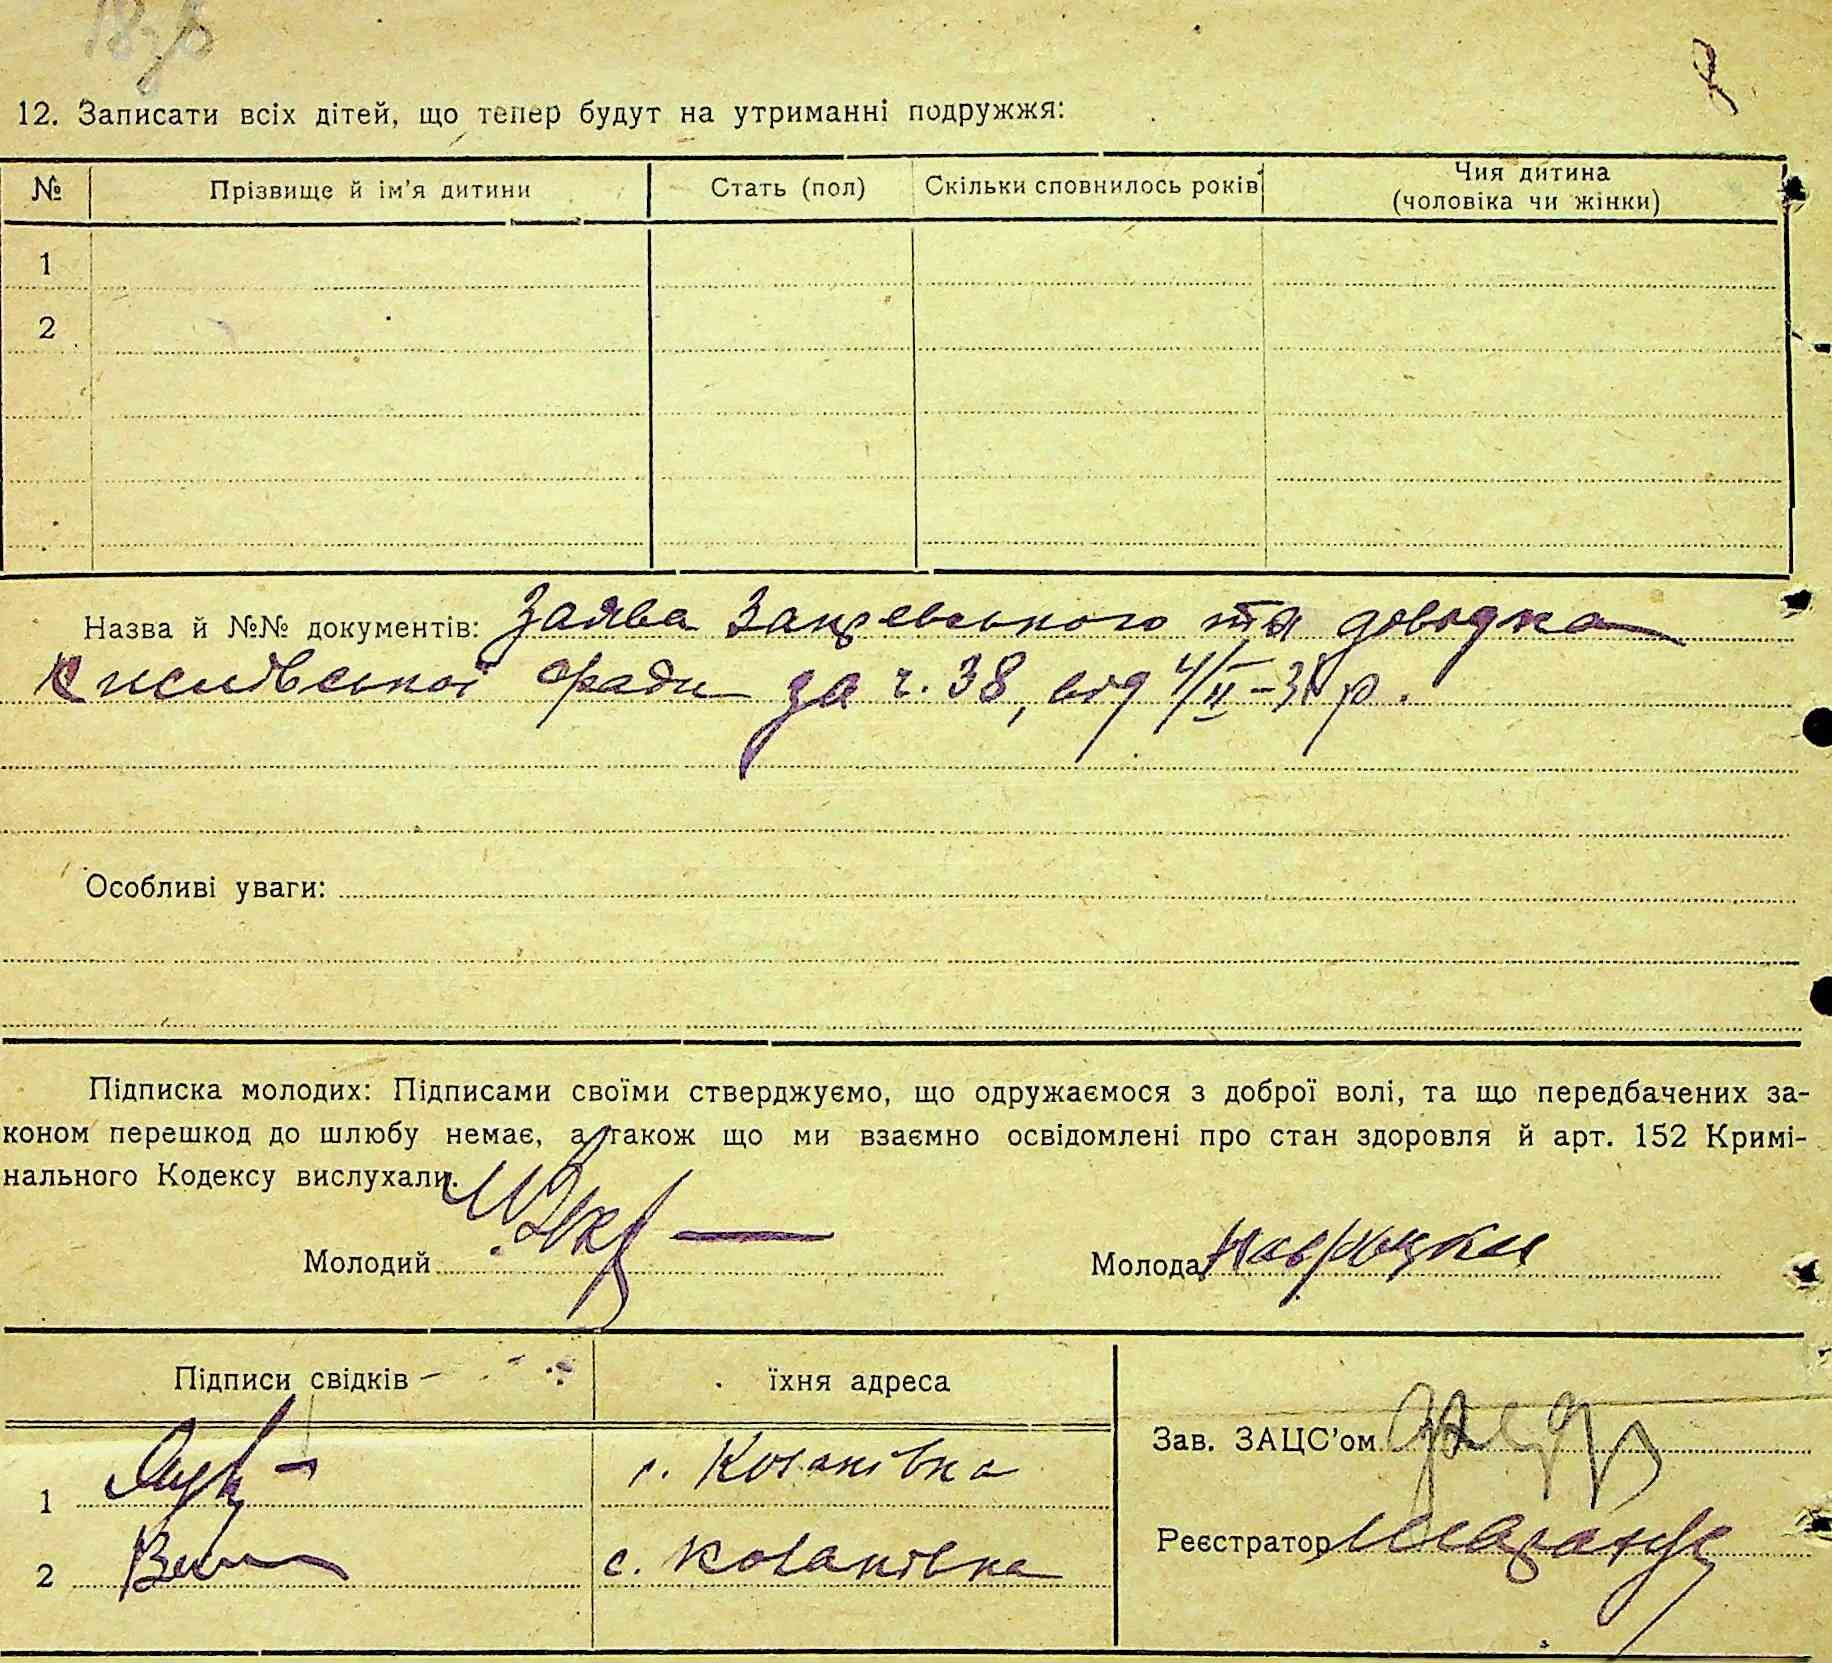 12. Записати всіх дітей, що тепер будут на утриманні подружжя:
№ Прізвище й ім'я дитини Стать (пол) Скільки сповнилось років Чия дитина (чоловіка чи жінки)
1
2
Назва й №№ документів: Заява Закревського та довідка
сради за ч. 38, від 4/II-31 р.
Особливі уваги:
Підписка молодих: Підписами своїми стверджуємо, що одружаємося з доброї волі, та що передбачених за-
коном перешкод до шлюбу немає, а також що ми взаємно освідомлені про стан здоровля й арт. 152 Кримі-
нального Кодексу вислухали.
Молодий Молода
Підписи свідків їхня адреса
Зав. ЗАЦС'ом
1 с. Козанівка
Реєстратор
2 с. Козанівка